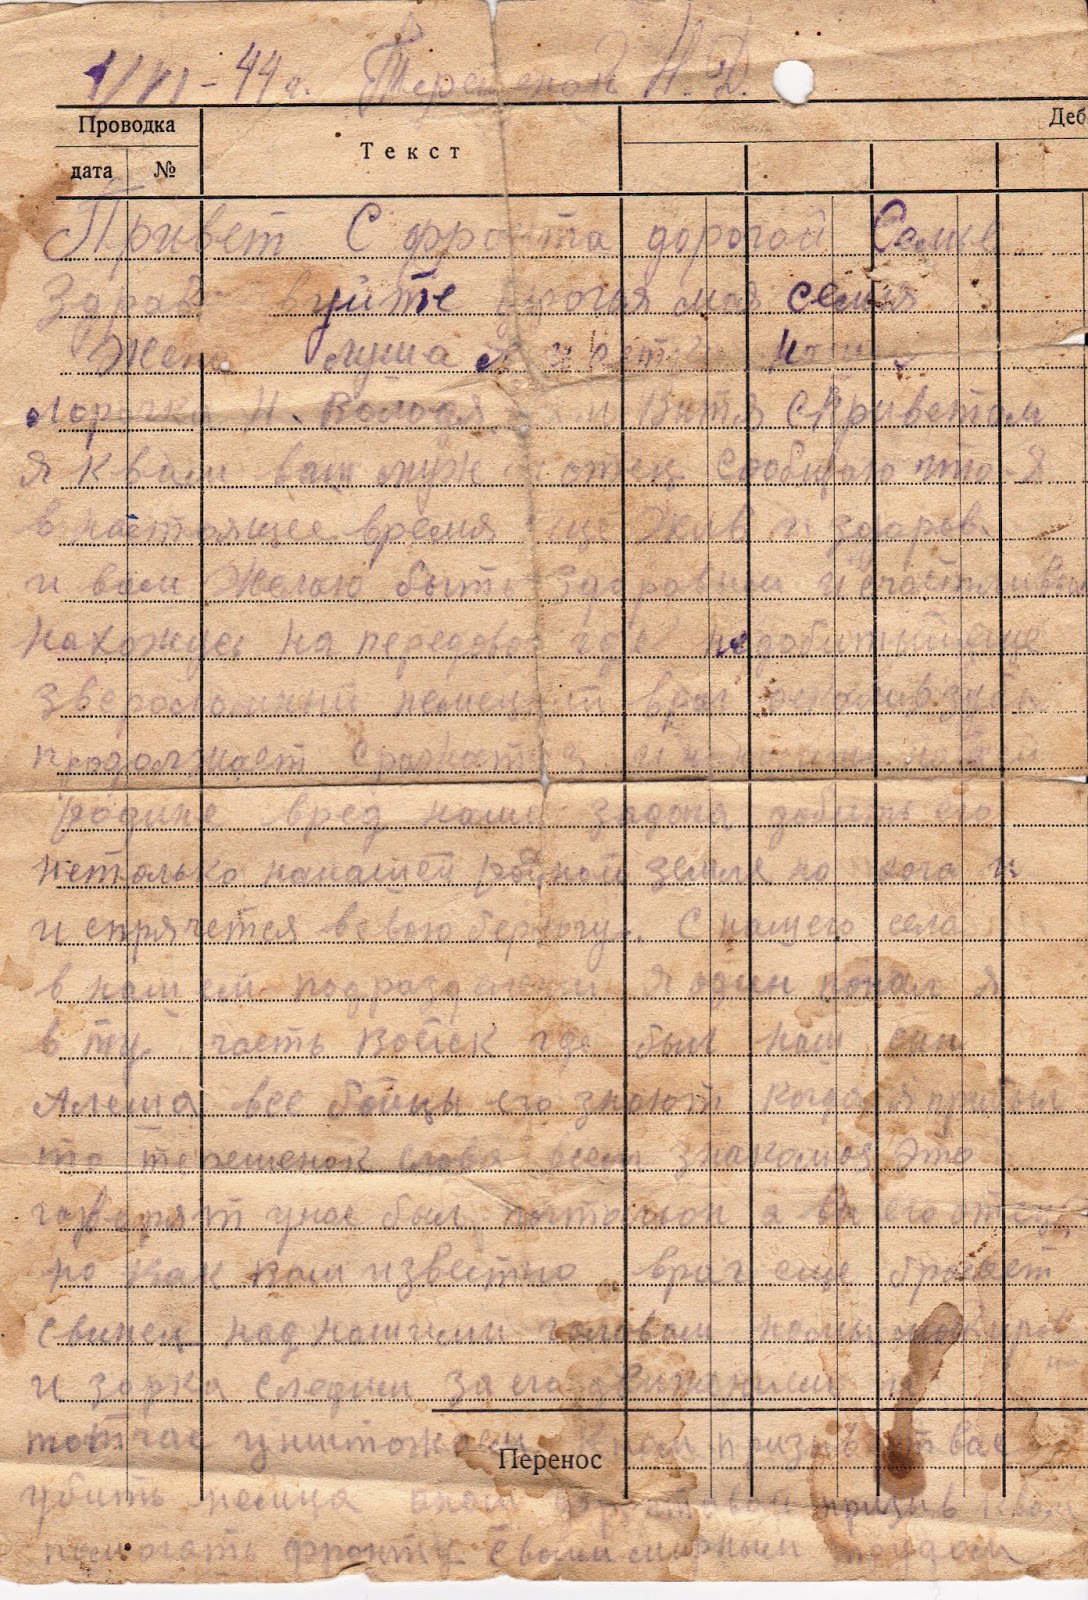 1/VI-44 г. Терешенок Н. Д.
Проводка Текст Деб
дата №
Привет С фронта дорогой Семье
Здрав вуйте дрогая моя семия
Жена луша и детки
лорочка Н. Володя и Витя с Приветом
я к вам ваш муж отец сообщаю што я
в настоящее время еще жив и здоров
и вам Желаю быть здоровыи и счастливыи
нахожусь на передовой где недобитый еще
звероломный немецкий враг
продолжает
родине вред наша задача добить его
нетолько нанашей родной земле но кога и
и спрячется всвою берлогу. С нашего села
в нашем подразделении я один попал я
в ту часть войск где был наш сын
Алеша все бойцы его знают когда я прибыл
то терешенок слова всем знакомоя это
говорят унас был я его отец
но как вам известно враг еще бросает
свинец над нашими головам номы
и зорка следим за его движением и
тотчас уништожаем
Перенос
убить немца призив к вам
помогать фронту Своим мирным трудом